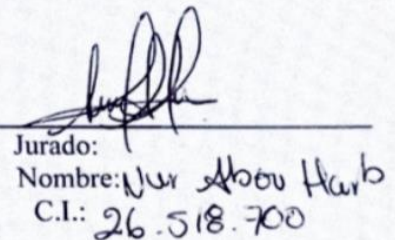 Jurado:
Nombre: Nur Abou Harb
C.I.: 26.518.700